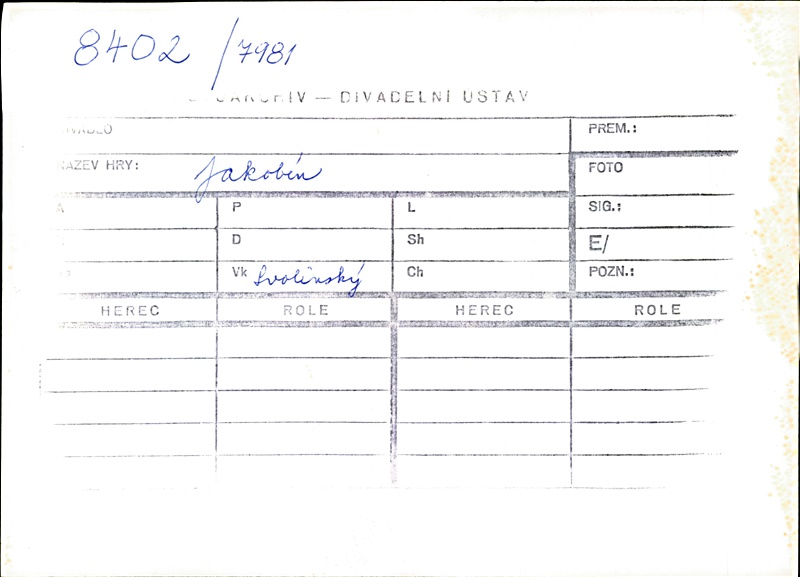 8402/7981
DIVADELNÍ ÚSTAV
PREM.:
NÁZEV HRY: Jakobín
FOTO
A P L SIG.:
D Sh E/
Vk Svolinský Ch POZN.:
HEREC ROLE HEREC ROLE